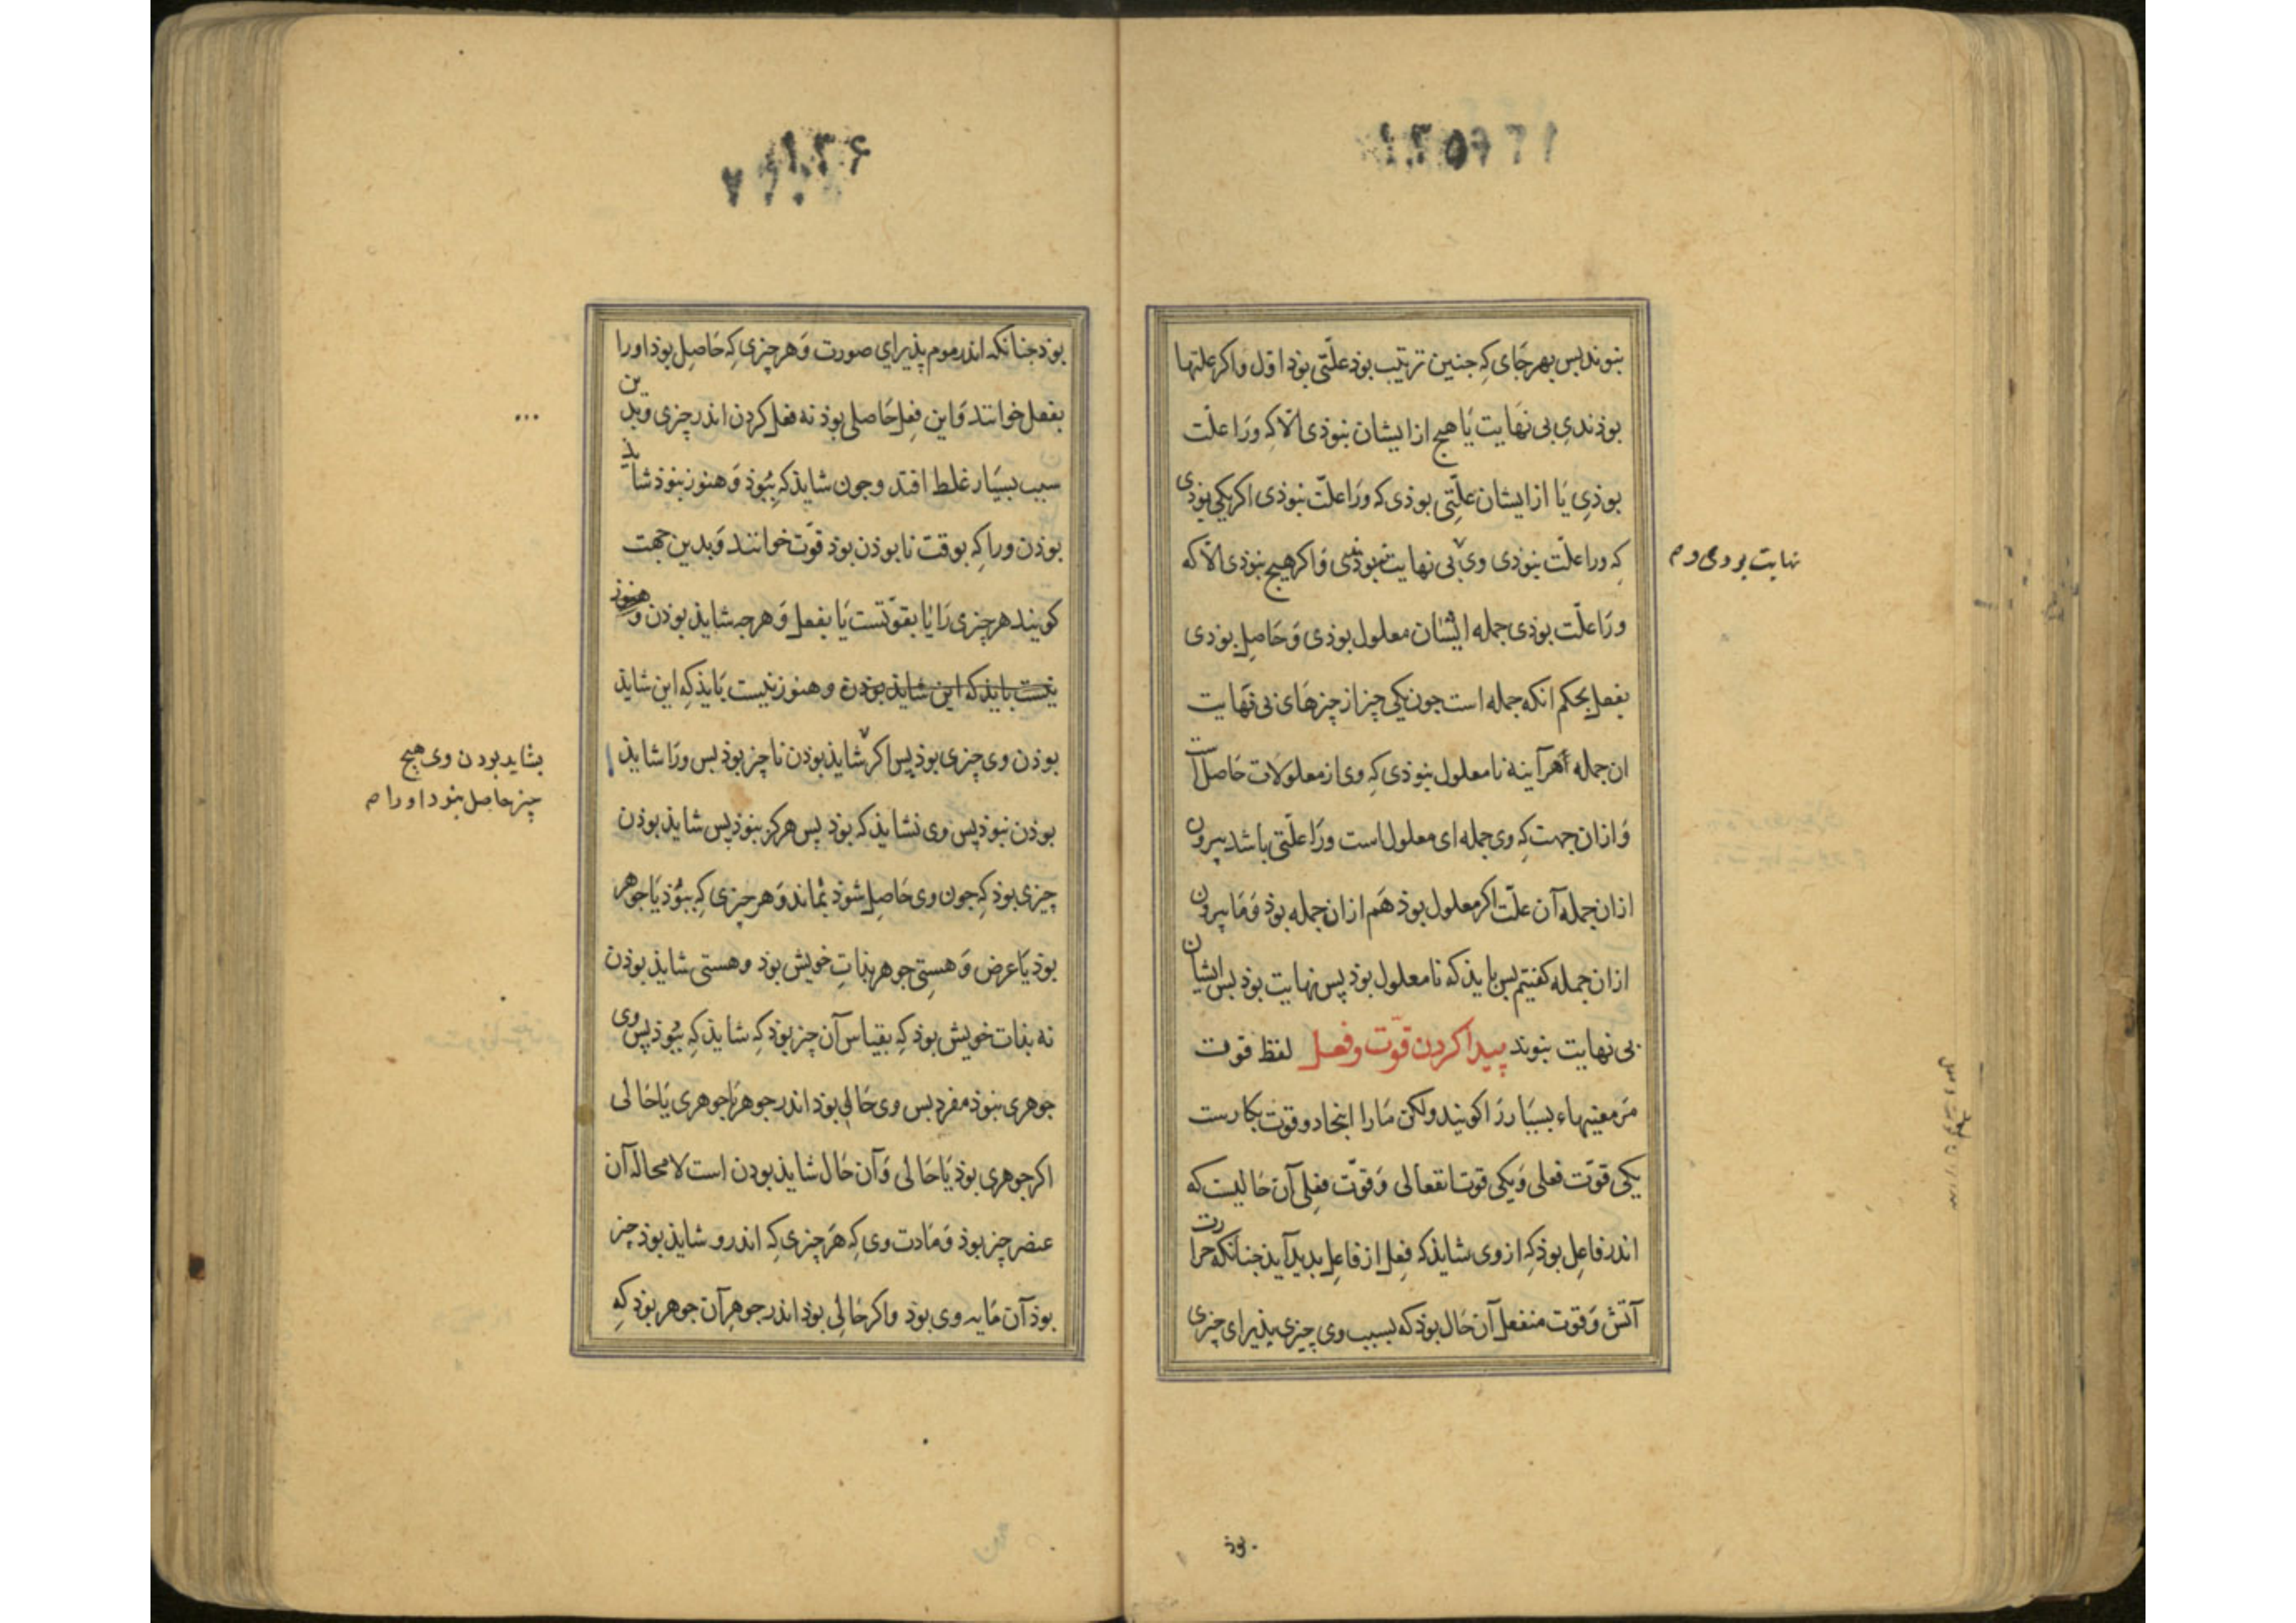 ۱۳۵
نبوند بس بهر جای که جنین ترتیب بوذ علّتی بوذ اوّل واکر علتها
بوذندی بی نهایت یا هیج ازایشان نبوذی الّا که ورا علّت
بوذی یا ازایشان علّتی بوذی که ورا علّت نبوذی اکر یکی بوذی
که ورا علّت نبوذی وی بی نهایت نبوذی واکر هیج نبوذی الّا که
نهایت بودی و م
ورا علّت بوذی جمله ایشان معلول بوذی و حاصل بوذی
بفعل بحکم انکه جمله است جون یکی چیز از چیزهای بی نهایت
ان جمله هرآینه نامعلول نبوذی که وی از معلولات حاصل است
و ازان جهت که وی جمله ای معلول است ورا علّتی باشد بیرون
ازان جمله آن علّت اکر معلول بوذ هم ازان جمله بوذ و ما بیرون
ازان جمله کفتیم بس بایذ که نامعلول بوذ پس نهایت بوذ بس ایشان
بی نهایت نبوند پیدا کردن قوّت و فعل لفظ قوت
مر معنیهاء بسیار را کویند ولکن ما را اینجا دو قوت بکارست
یکی قوّت فعلی و یکی قوت انفعالی و قوّت فعلی آن حالیست که
اندر فاعل بوذ که از وی شایذ که فعل از فاعل بدید آیذ جنانکه حرارت
آتش و قوت منفعل آن حال بوذ که بسبب وی چیزی پذیرای چیزی
بوذ
۱۳۶
بوذ جنانکه اندر موم پذیرای صورت و هر چیزی که حاصل بوذ اورا
بفعل خوانند و این فعل حاصلی بوذ نه فعل کردن اندر چیزی و بدین
...
سبب بسیار غلط افتد و جون شایذ که ببوذ و هنوز نبوذ شاید
بوذن ورا که بوقت نابوذن بوذ قوّت خوانند و بدین جهت
کویند هر چیزی را یا بقوّتست یا بفعل و هر جه شایذ بوذن و هنوز
نیست بایذ که این شایذ بوذن و هنوز نیست بایذ که این شایذ
بوذن وی چیزی بوذ پس اکر شایذ بوذن ناچیز بوذ بس ورا شایذ
بشاید بودن وی هیچ
چیز حاصل نبود اورا م
بوذن نبوذ پس وی نشایذ که بوذ پس هرکز نبوذ پس شایذ بوذن
چیزی بوذ که جون وی حاصل شوذ بماند و هر چیزی که ببوذ یا جوهر
بوذ یا عرض و هستی جوهر بذات خویش بوذ و هستی شایذ بوذن
نه بذات خویش بوذ که بقیاس آن چیز بوذ که شایذ که ببوذ پس وی
جوهری نبوذ مفرد بس وی حالی بوذ اندر جوهر یا جوهری یا حالی
اکر جوهری بوذ یا حالی و آن حال شایذ بودن است لامحاله آن
عنصر چیز بوذ و مادت وی که هر چیزی که اندر و شایذ بوذ چیز
بوذ آن مایه وی بوذ واکر حالی بوذ اندر جوهر آن جوهر بوذ که